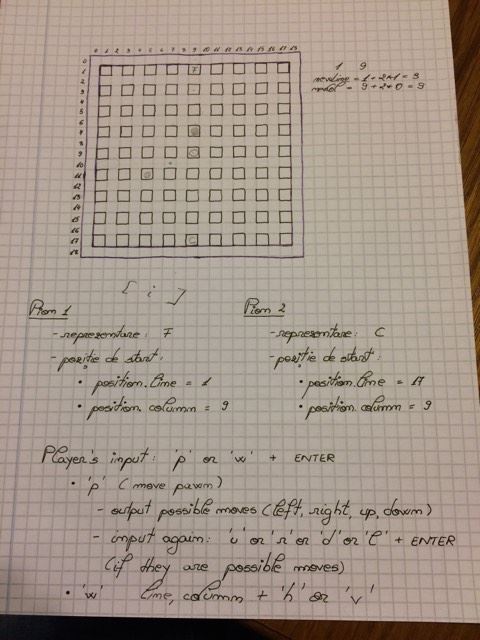 0 1 2 3 4 5 6 7 8 9 10 11 12 13 14 15 16 17 18
0
1
2
3
4
5
6
7
8
9
10
11
12
13
14
15
16
17
18
F
1 9
newline = 1 + 2*1 = 3
= 9 + 2*0 = 9
[ i ]
Pion 1
- reprezentare: F
- poziție de start:
• position.line = 1
• position.column = 9
Pion 2
- reprezentare: C
- poziție de start:
• position.line = 17
• position.column = 9
Player's input: 'p' or 'w' + ENTER
• 'p' (move pawn)
- output possible moves (left, right, up, down)
- input again: 'u' or 'r' or 'd' or 'l' + ENTER
(if they are possible moves)
• 'w' line, column + 'h' or 'v'